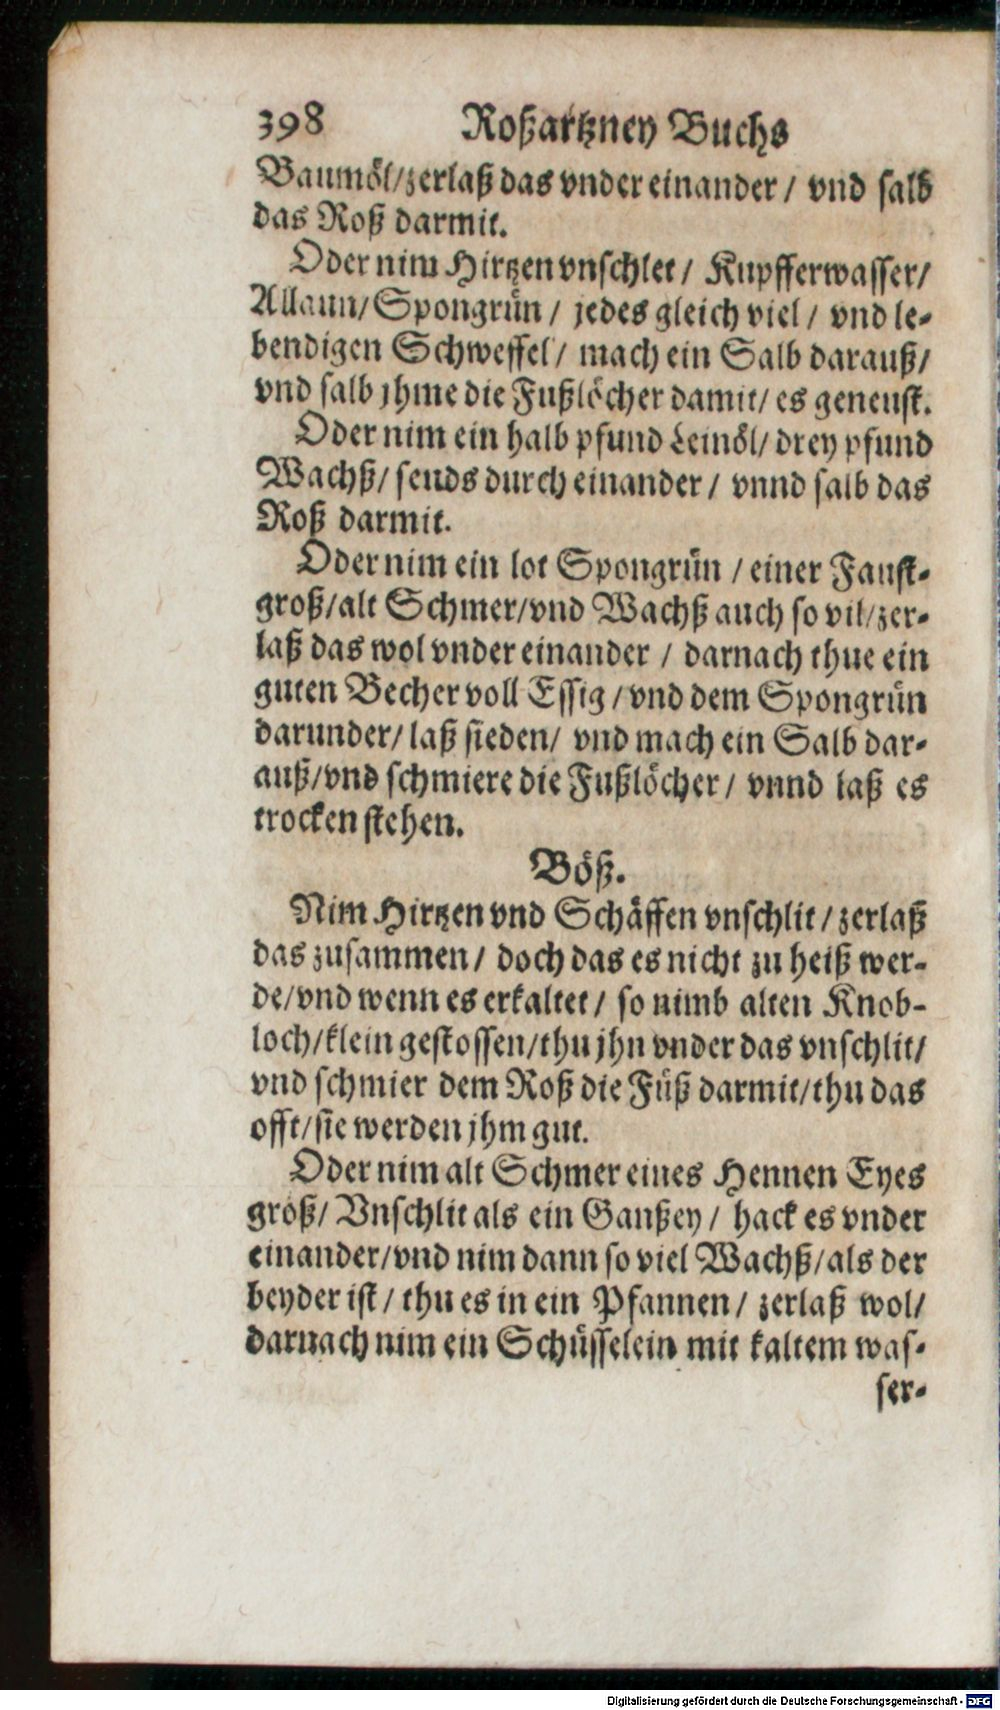 398 Roßartzney Buchs
Baumöl/zerlaß das vnder einander / vnd salb
das Roß darmit.
Oder nim Hirtzen vnschlet / Kupfferwasser/
Allaun/Spongrün / jedes gleich viel / vnd le-
bendigen Schweffel / mach ein Salb darauß/
vnd salb jhme die Fußlöcher damit/ es geneust.
Oder nim ein halb pfund Leinöl/ drey pfund
Wachß/ seuds durch einander / vnnd salb das
Roß darmit.
Oder nim ein lot Spongrün / einer Faust-
groß/alt Schmer/vnd Wachß auch so vil/zer-
laß das wol vnder einander / darnach thue ein
guten Becher voll Essig / vnd dem Spongrün
darunder/ laß sieden/ vnd mach ein Salb dar-
auß/vnd schmiere die Fußlöcher / vnnd laß es
trocken stehen.
Böß.
Nim Hirtzen vnd Schäffen vnschlit / zerlaß
das zusammen / doch das es nicht zu heiß wer-
de/vnd wenn es erkaltet / so nimb alten Knob-
loch/klein gestossen/thu jhn vnder das vnschlit/
vnd schmier dem Roß die Füß darmit/thu das
offt/sie werden jhm gut.
Oder nim alt Schmer eines Hennen Eyes
groß/ Vnschlit als ein Ganßey / hack es vnder
einander/vnd nim dann so viel Wachß/als der
beyder ist / thu es in ein Pfannen / zerlaß wol/
darnach nim ein Schüsselein mit kaltem was-
ser-
Digitalisierung gefördert durch die Deutsche Forschungsgemeinschaft - DFG